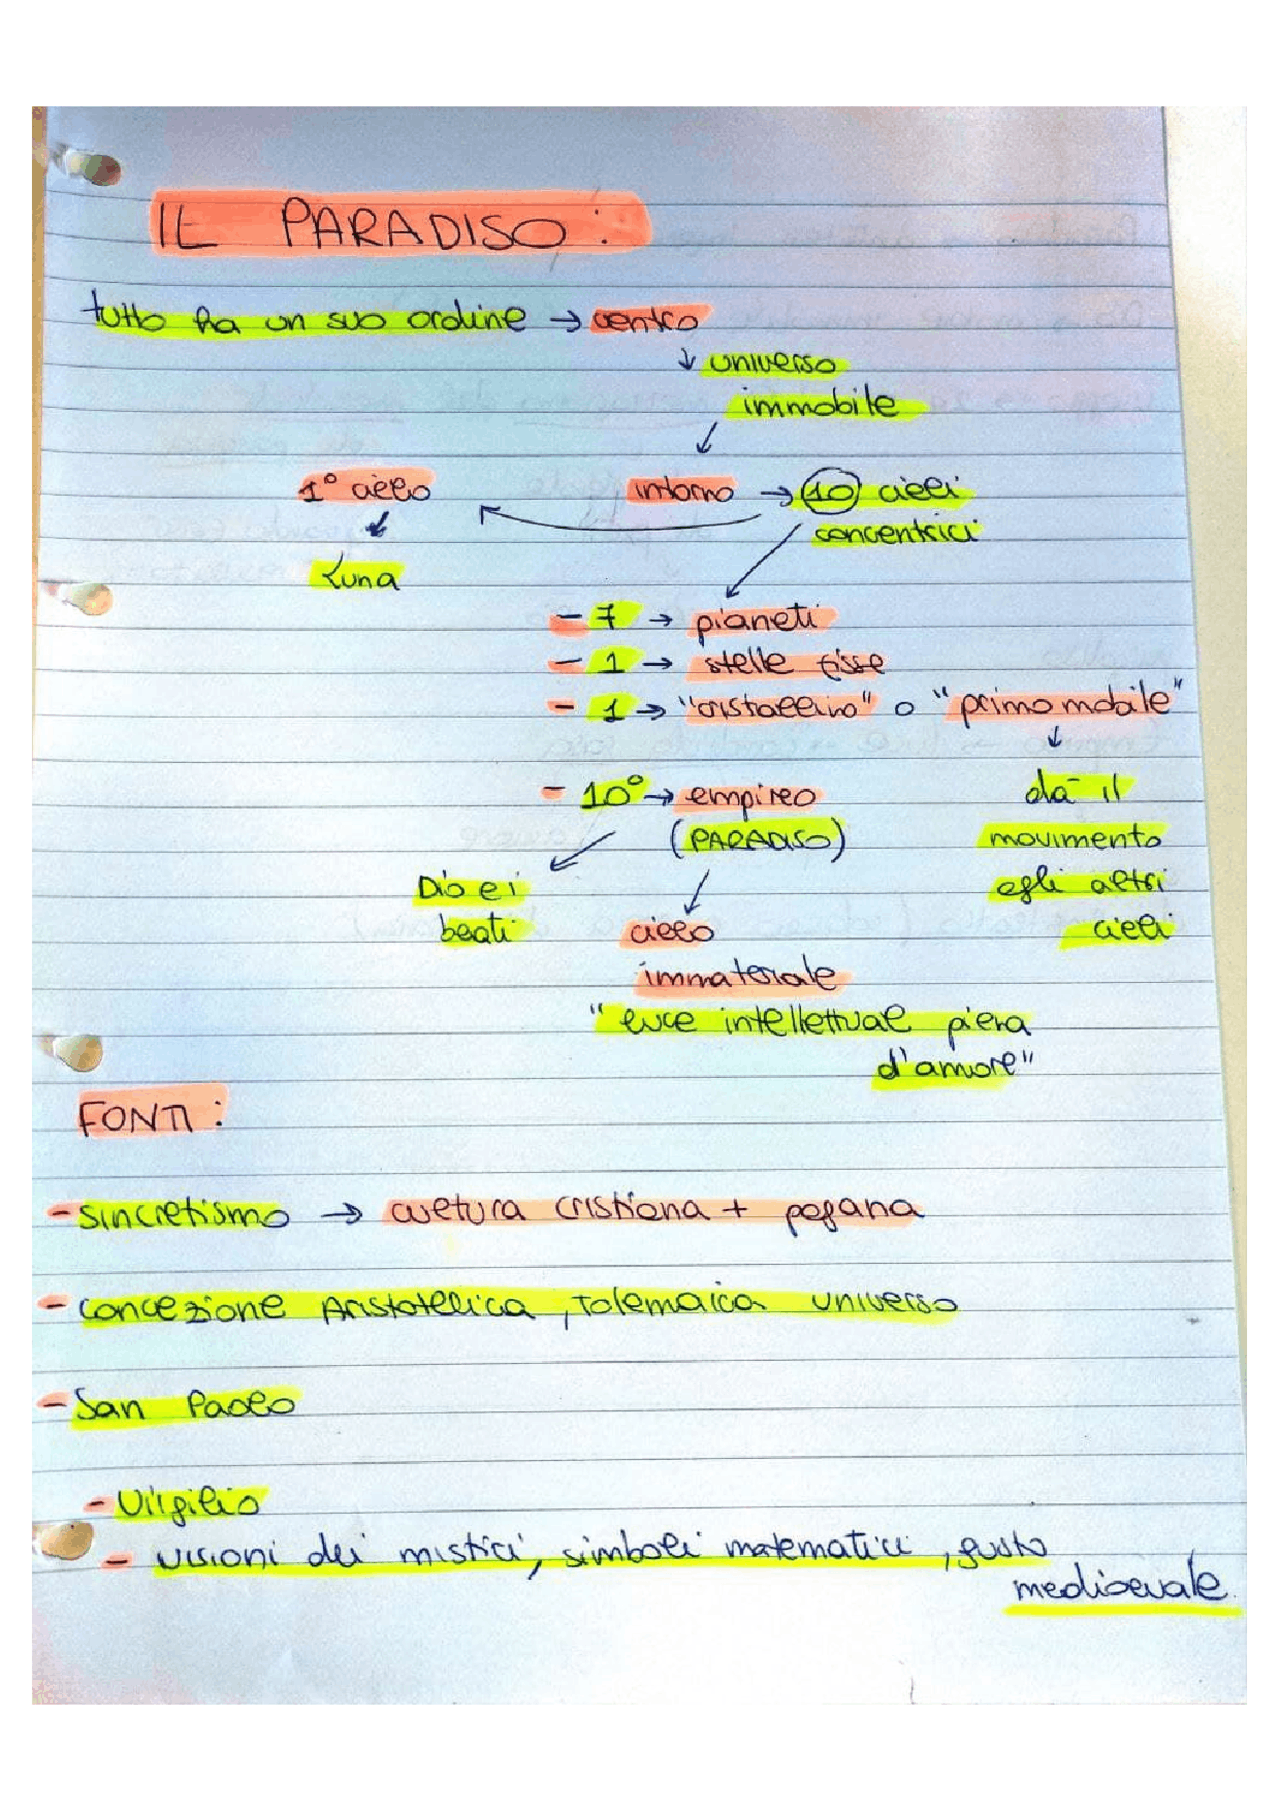 IL PARADISO:
tutto ha un suo ordine → centro
↓ universo
immobile
1° cielo intorno → 10 cieli
concentrici
Luna
- 7 → pianeti
- 1 → stelle fisse
- 1 → "cristallino" o "primo mobile"
- 10° → empireo dà il
(PARADISO) movimento
Dio e i agli altri
beati cielo cieli
immateriale
"luce intellettual piena
d'amore"
FONTI:
- sincretismo → cultura cristiana + pagana
- concezione Aristotelica, Tolemaica universo
- San Paolo
- Virgilio
- visioni dei mistici, simboli matematici, gusto
medioevale.